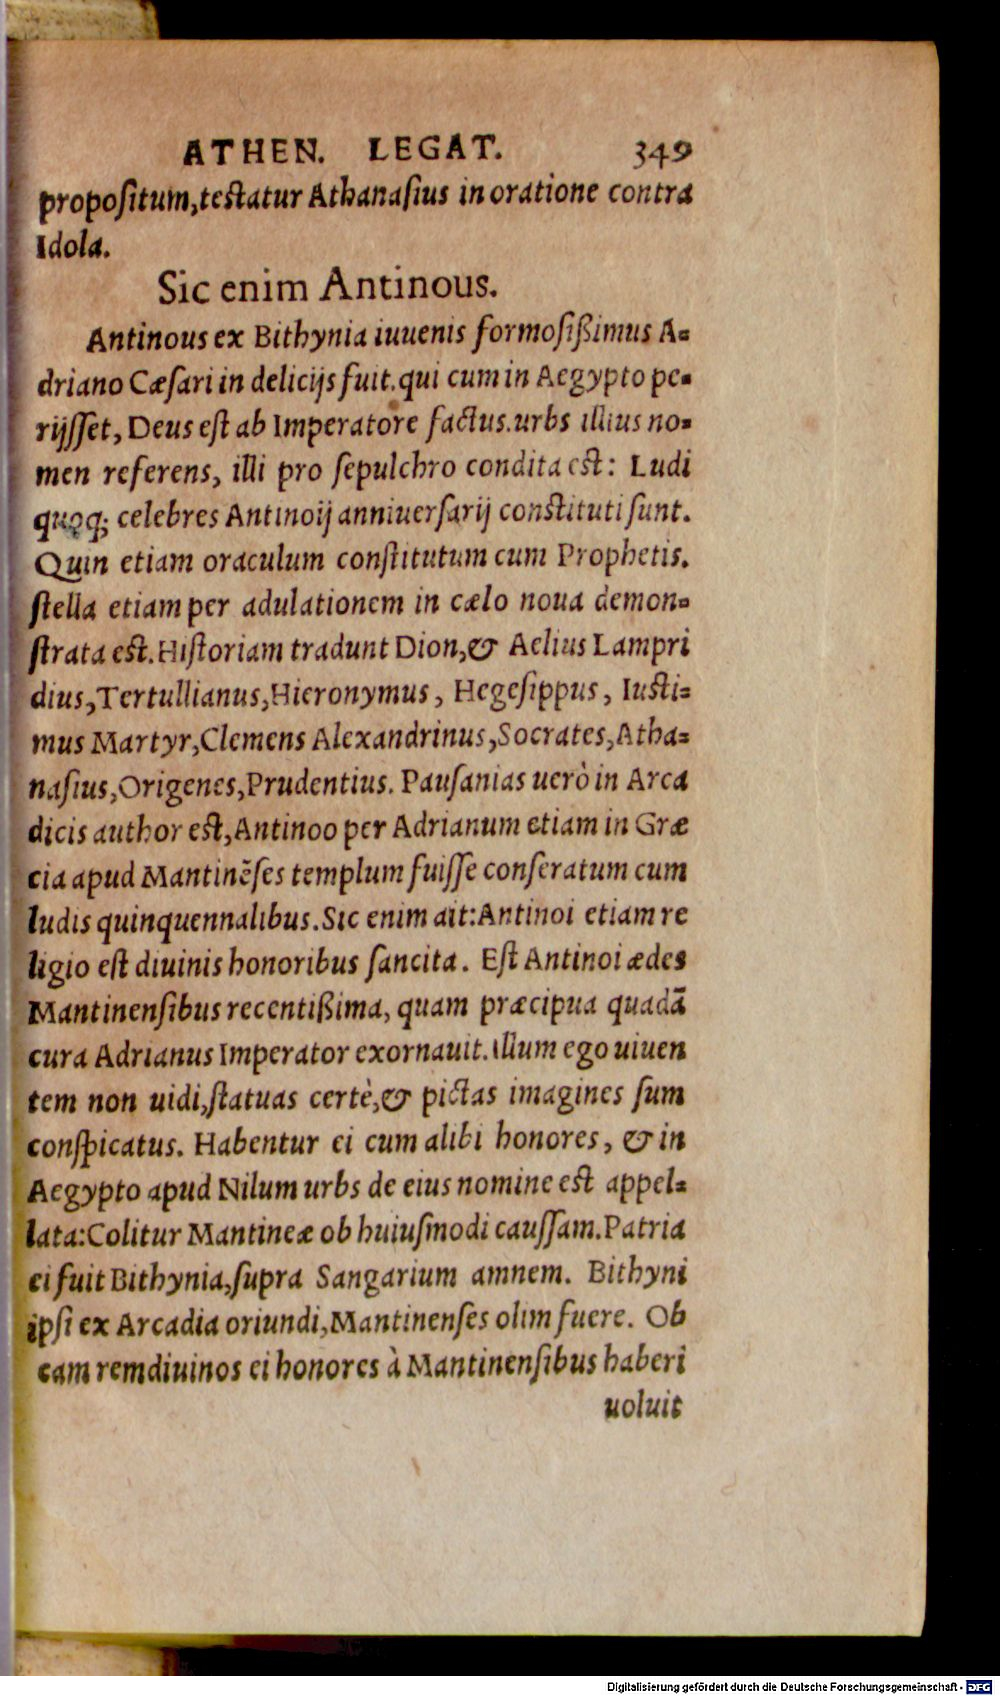 ATHEN. LEGAT. 349
propoſitum,teſtatur Athanaſius in oratione contra
Idola.
Sic enim Antinous.
Antinous ex Bithynia iuuenis formoſißimus A-
driano Cæſari in delicijs fuit.qui cum in Aegypto pe-
rijſſet, Deus eſt ab Imperatore factus.urbs illius no-
men referens, illi pro ſepulchro condita eſt: Ludi
quoq; celebres Antinoij anniuerſarij conſtituti ſunt.
Quin etiam oraculum conſtitutum cum Prophetis.
ſtella etiam per adulationem in cælo noua demon-
ſtrata eſt.Hiſtoriam tradunt Dion,& Aelius Lampri
dius,Tertullianus,Hieronymus, Hegeſippus, Iuſti-
mus Martyr,Clemens Alexandrinus,Socrates,Atha-
naſius,Origenes,Prudentius. Pauſanias uerò in Arca
dicis author eſt,Antinoo per Adrianum etiam in Græ
cia apud Mantinẽſes templum fuiſſe conſeratum cum
ludis quinquennalibus.Sic enim ait:Antinoi etiam re
ligio eſt diuinis honoribus ſancita. Eſt Antinoi ædes
Mantinenſibus recentißima, quam præcipua quadã
cura Adrianus Imperator exornauit.illum ego uiuen
tem non uidi,ſtatuas certè,& pictas imagines ſum
conſpicatus. Habentur ei cum alibi honores, & in
Aegypto apud Nilum urbs de eius nomine eſt appel-
lata:Colitur Mantineæ ob huiuſmodi cauſſam.Patria
ei fuit Bithynia,ſupra Sangarium amnem. Bithyni
ipſi ex Arcadia oriundi,Mantinenſes olim fuere. Ob
eam rem diuinos ei honores à Mantinenſibus haberi
uoluit
Digitalisierung gefördert durch die Deutsche Forschungsgemeinschaft - DFG